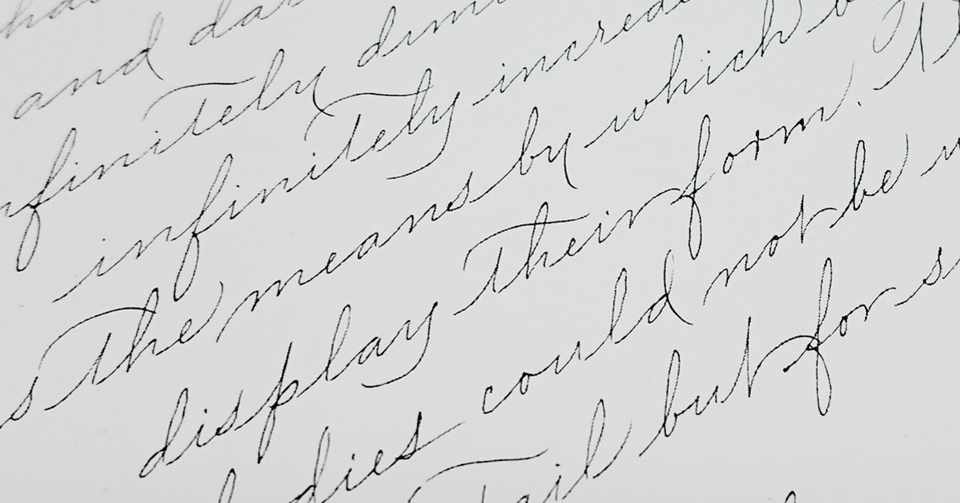 and dar
nfinitely dim
infinitely increa
s the means by which b
display their form. Th
bodies could not be
tail but for s